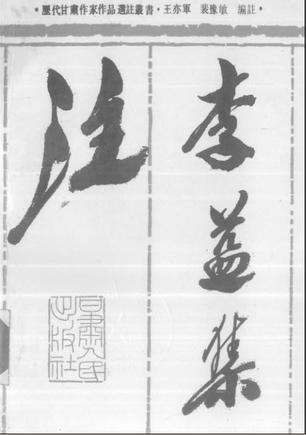 •歷代甘肅作家作品選註叢書•王亦軍 裴豫敏 編註•
李益集
注
甘肅人民出版社